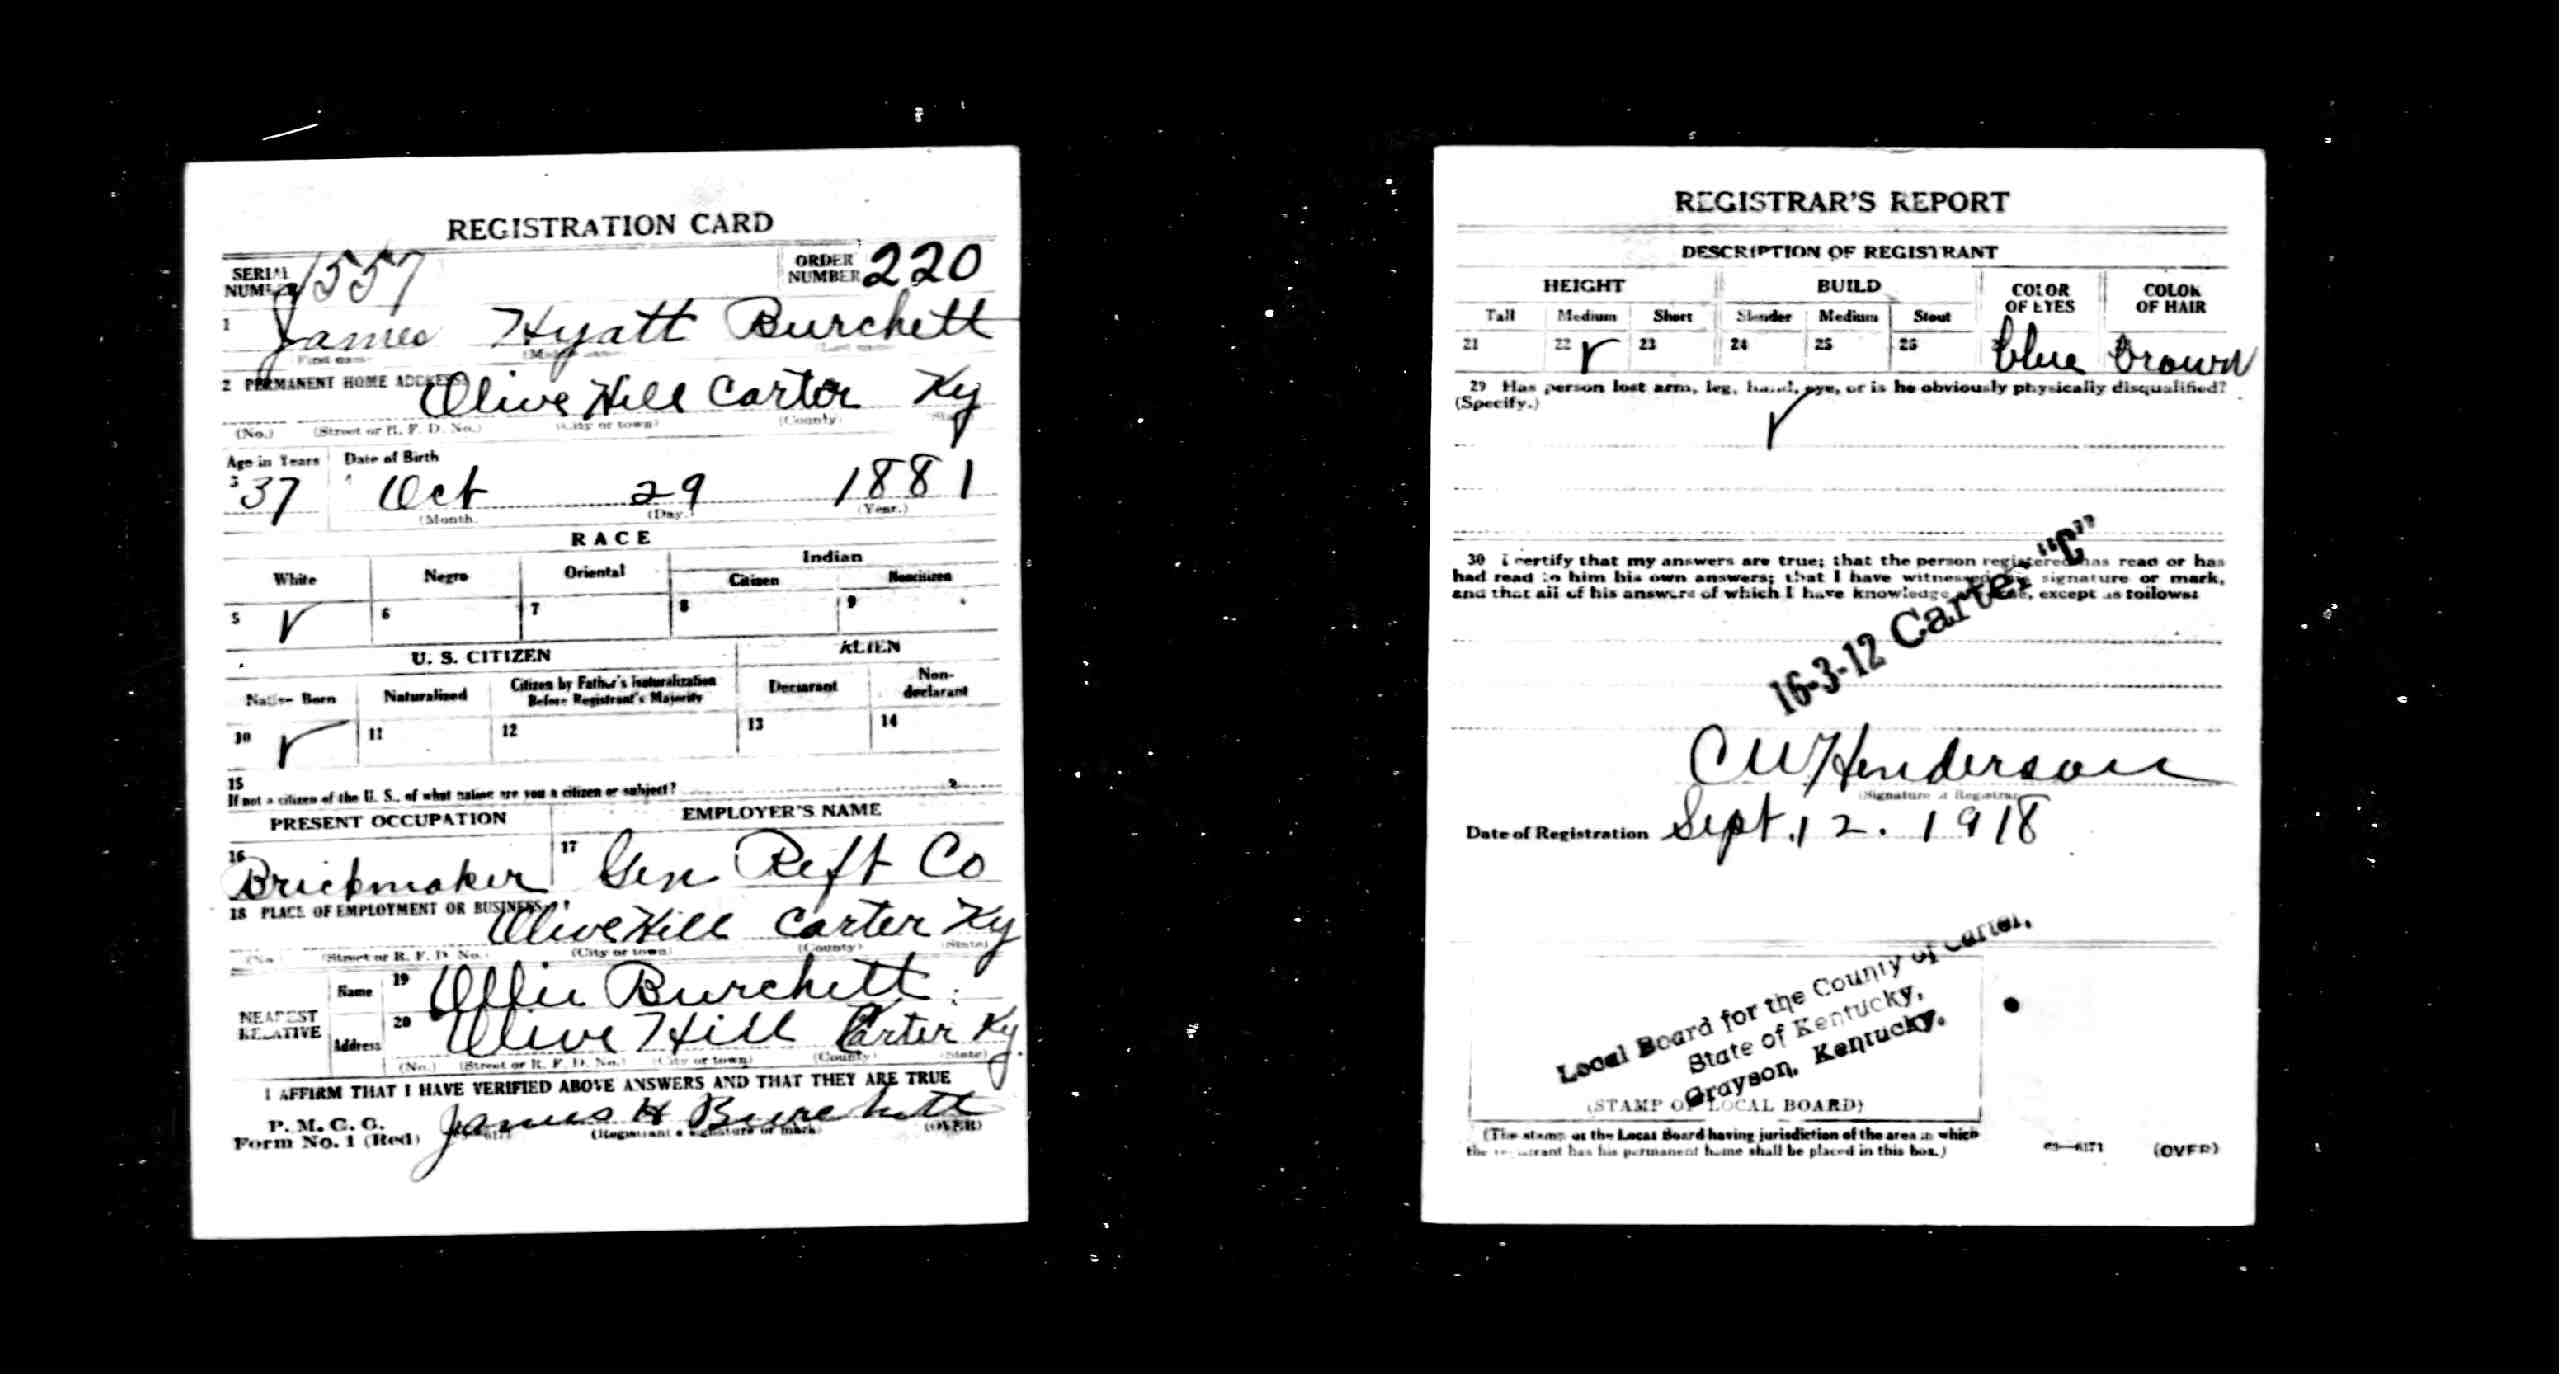 REGISTRATION CARD
SERIAL NUMBER 1557 ORDER NUMBER 220
1 James Hyatt Burchett
First name (Middle name) Last name
2 PERMANENT HOME ADDRESS
Olive Hill Carter Ky
(No.) (Street or R. F. D. No.) (City or town) (County) (State)
Age in Years Date of Birth
3 37 Oct 29 1881
(Month. (Day.) (Year.)
RACE
White Negro Oriental Indian
Citizen Noncitizen
5 6 7 8 9
U. S. CITIZEN ALIEN
Native Born Naturalized Citizen by Father's Naturalization Before Registrant's Majority Declarant Non-declarant
10 11 12 13 14
15
If not a citizen of the U. S., of what nation are you a citizen or subject?
PRESENT OCCUPATION EMPLOYER'S NAME
16 Brickmaker 17 Gen Reft Co
18 PLACE OF EMPLOYMENT OR BUSINESS
Olive Hill Carter Ky
(No.) (Street or R. F. D. No.) (City or town) (County) (State)
NEAREST RELATIVE
Name 19 Ollie Burchett
Address 20 Olive Hill Carter Ky
(No.) (Street or R. F. D. No.) (City or town) (County) (State)
I AFFIRM THAT I HAVE VERIFIED ABOVE ANSWERS AND THAT THEY ARE TRUE
P. M. G. O.
Form No. 1 (Red) James H Burchett
(Registrant's signature or mark) (OVER)
REGISTRAR'S REPORT
DESCRIPTION OF REGISTRANT
HEIGHT BUILD COLOR OF EYES COLOR OF HAIR
Tall Medium Short Slender Medium Stout
21 22 23 24 25 26 blue brown
29 Has person lost arm, leg, hand, eye, or is he obviously physically disqualified?
(Specify.)
30 I certify that my answers are true; that the person registered has read or has
had read to him his own answers; that I have witnessed his signature or mark,
and that all of his answers of which I have knowledge are true, except as follows:
16-3-12 Carter "C"
C W Henderson
(Signature of Registrar)
Date of Registration Sept. 12. 1918
Local Board for the County of Carter,
State of Kentucky,
Grayson, Kentucky.
(STAMP OF LOCAL BOARD)
(The stamp of the Local Board having jurisdiction of the area in which
the registrant has his permanent home shall be placed in this box.)
03—6171 (OVER)